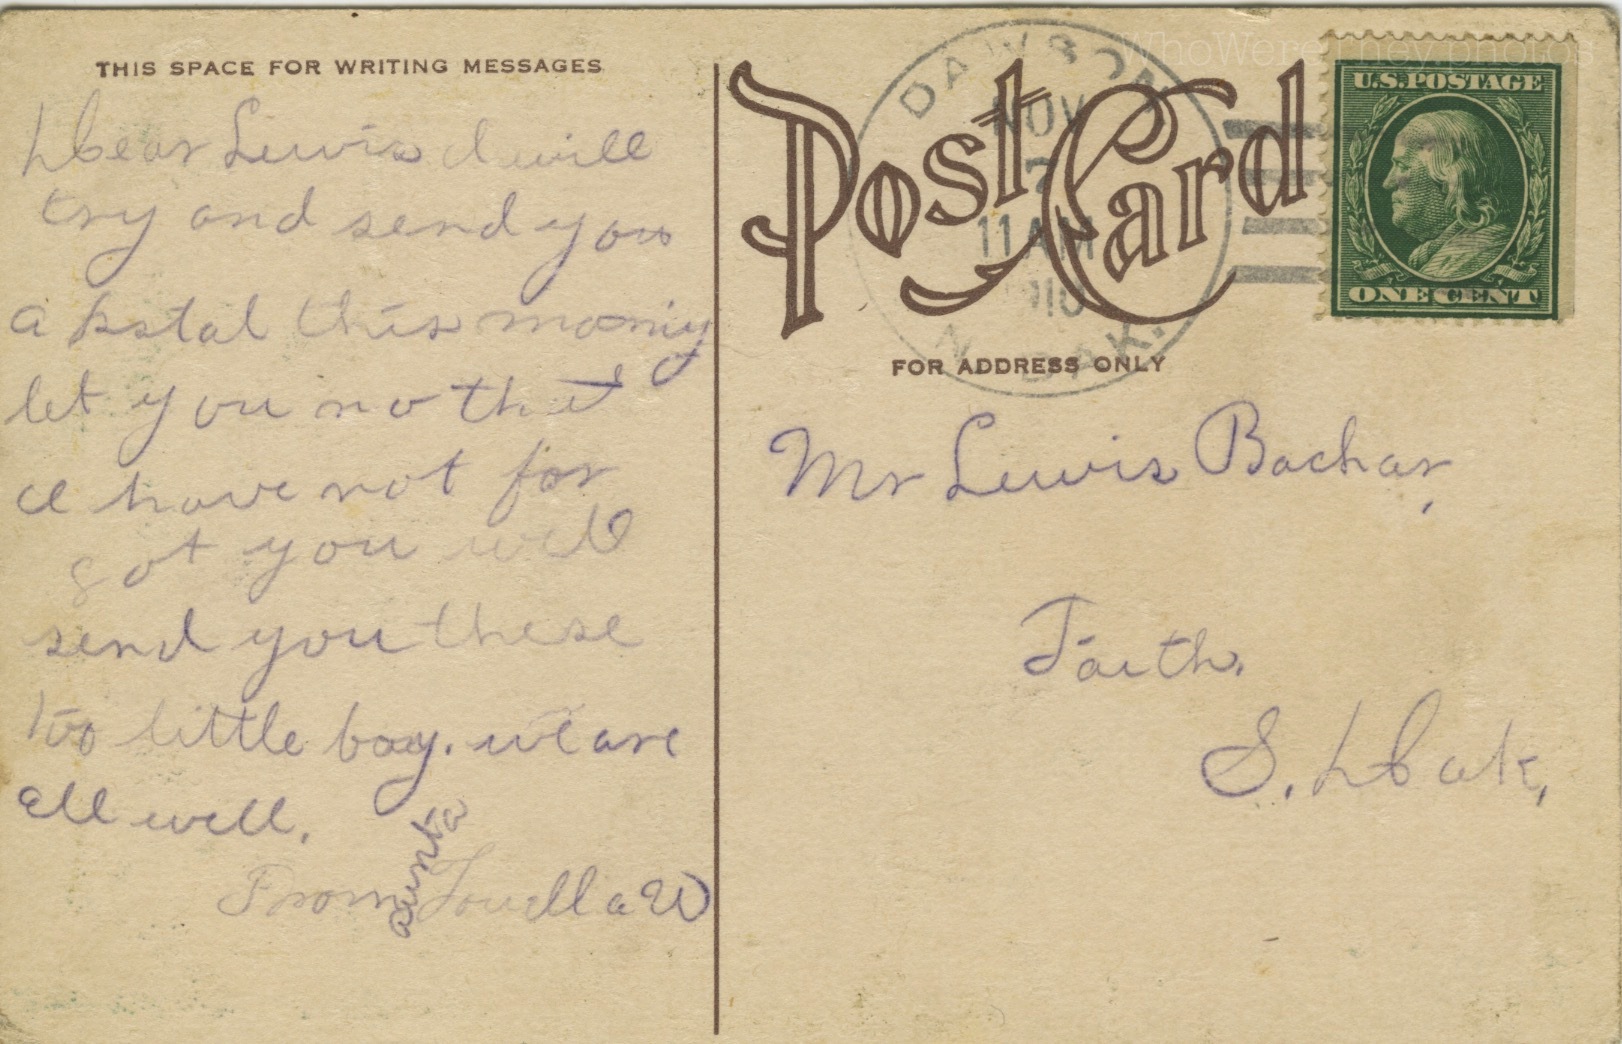 THIS SPACE FOR WRITING MESSAGES
Dear Lewis I will
try and send you
a postal this morniy
let you no thet
I have not for
got you will
send you these
too little boy. we are
all well.
From aunta Louella W
WhoWereThey.photos
Post Card
U.S. POSTAGE
ONE CENT
DAWSON
NOV
7
11 AM
1910
N. DAK.
FOR ADDRESS ONLY
Mr Lewis Bachar,
Faith.
S. Dak,